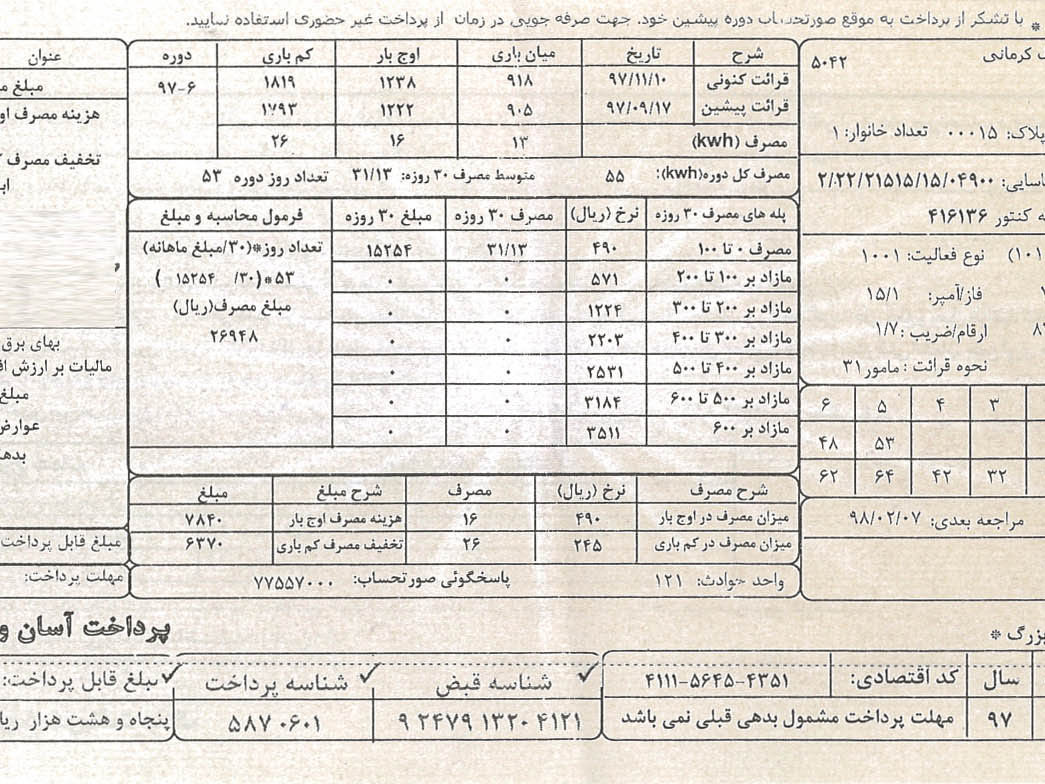 * با تشکر از پرداخت به موقع صورتحساب دوره پیشین خود. جهت صرفه جویی در زمان از پرداخت غیر حضوری استفاده نمایید.
کرمانی ۵۰۴۲
پلاک: ۰۰۰۱۵ تعداد خانوار: ۱
۲/۲۲/۲۱۵۱۵/۱۵/۰۴۹۰۰
کنتور ۴۱۶۱۳۶
نوع فعالیت: ۱۰۰۱
فاز/آمپر: ۱۵/۱
ارقام/ضریب: ۱/۷
نحوه قرائت: مامور ۳۱
۳ ۴ ۵ ۶
۵۳ ۴۸
۳۲ ۴۲ ۶۴ ۶۲
مراجعه بعدی: ۹۸/۰۲/۰۷
شرح تاریخ میان باری اوج بار کم باری دوره
قرائت کنونی ۹۷/۱۱/۱۰ ۹۱۸ ۱۲۳۸ ۱۸۱۹ ۹۷-۶
قرائت پیشین ۹۷/۰۹/۱۷ ۹۰۵ ۱۲۲۲ ۱۷۹۳
مصرف (kwh) ۱۳ ۱۶ ۲۶
مصرف کل دوره(kwh): ۵۵ متوسط مصرف ۳۰ روزه: ۳۱/۱۳ تعداد روز دوره ۵۳
پله های مصرف ۳۰ روزه نرخ (ریال) مصرف ۳۰ روزه مبلغ ۳۰ روزه فرمول محاسبه و مبلغ
مصرف ۰ تا ۱۰۰ ۴۹۰ ۳۱/۱۳ ۱۵۲۵۴ تعداد روز*(۳۰/مبلغ ماهانه)
مازاد بر ۱۰۰ تا ۲۰۰ ۵۷۱ ۰ ۰ ۵۳*(۳۰/ ۱۵۲۵۴ )
مازاد بر ۲۰۰ تا ۳۰۰ ۱۲۲۴ ۰ ۰ مبلغ مصرف(ریال)
مازاد بر ۳۰۰ تا ۴۰۰ ۲۲۰۳ ۰ ۰ ۲۶۹۴۸
مازاد بر ۴۰۰ تا ۵۰۰ ۲۵۳۱ ۰ ۰
مازاد بر ۵۰۰ تا ۶۰۰ ۳۱۸۴ ۰ ۰
مازاد بر ۶۰۰ ۳۵۱۱ ۰ ۰
شرح مصرف نرخ (ریال) مصرف شرح مبلغ مبلغ
میزان مصرف در اوج بار ۴۹۰ ۱۶ هزینه مصرف اوج بار ۷۸۴۰
میزان مصرف در کم باری ۲۴۵ ۲۶ تخفیف مصرف کم باری ۶۳۷۰
واحد حوادث: ۱۲۱ پاسخگوئی صورتحساب: ۷۷۵۵۷۰۰۰
عنوان
مبلغ
هزینه مصرف
تخفیف مصرف
بهای برق
مالیات بر ارزش
مبلغ
عوارض
مبلغ قابل پرداخت
مهلت پرداخت:
بزرگ *
پرداخت آسان و
سال کد اقتصادی: ۴۱۱۱-۵۶۴۵-۴۳۵۱ شناسه قبض شناسه پرداخت مبلغ قابل پرداخت:
۹۷ مهلت پرداخت مشمول بدهی قبلی نمی باشد ۹ ۲۴۷۹ ۱۳۲۰ ۴۱۲۱ ۵۸۷ ۰۶۰۱ پنجاه و هشت هزار